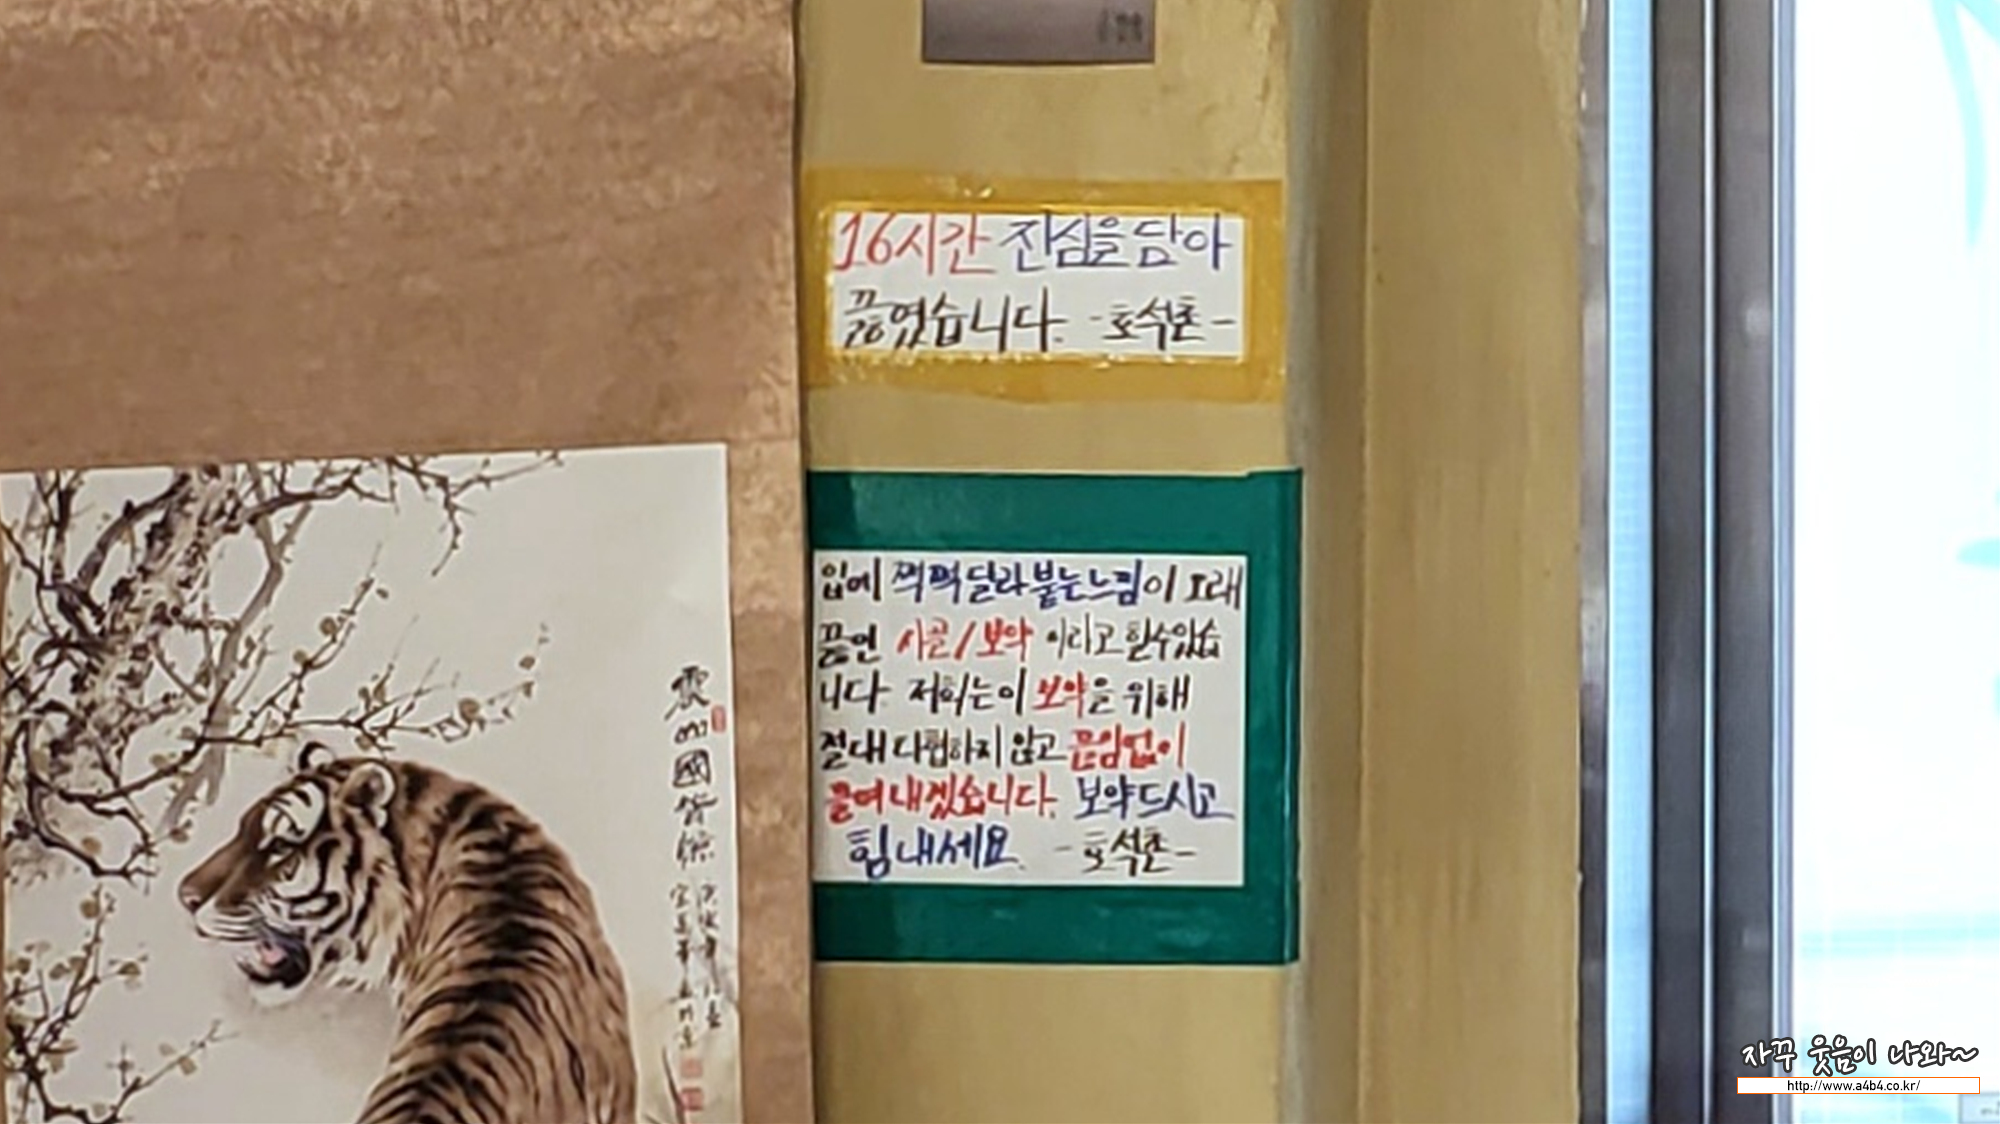 16시간 진심을 담아
끓였습니다. -호석촌-
입에 쩍쩍 달라붙는 느낌이 오래
끓인 사골/보약 이라고 할수있습
니다. 저희는 이 보약을 위해
절대 타협하지 않고 끊임없이
끓여내겠습니다. 보약드시고
힘내세요. -호석촌-
자꾸 웃음이 나와~
http://www.a4b4.co.kr/